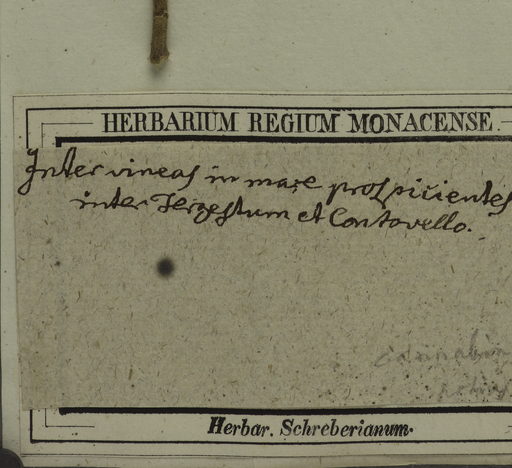 HERBARIUM REGIUM MONACENSE
Inter vineas in mare prospicientes
inter Tergestum et Contovello.
Herbar. Schreberianum.